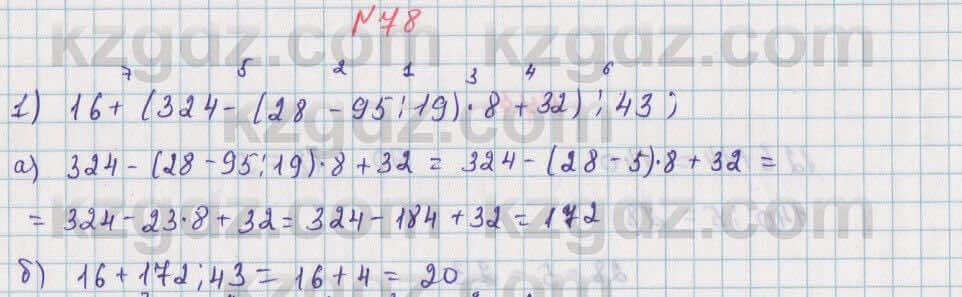 №78
7 5 2 1 3 4 6
1) 16 + (324 - (28 - 95 : 19) · 8 + 32) : 43 ;
а) 324 - (28 - 95 : 19) · 8 + 32 = 324 - (28 - 5) · 8 + 32 =
= 324 - 23 · 8 + 32 = 324 - 184 + 32 = 172
б) 16 + 172 : 43 = 16 + 4 = 20
kzgdz.com kzgdz.com
kzgdz.com
kzgdz.com kzgdz.com